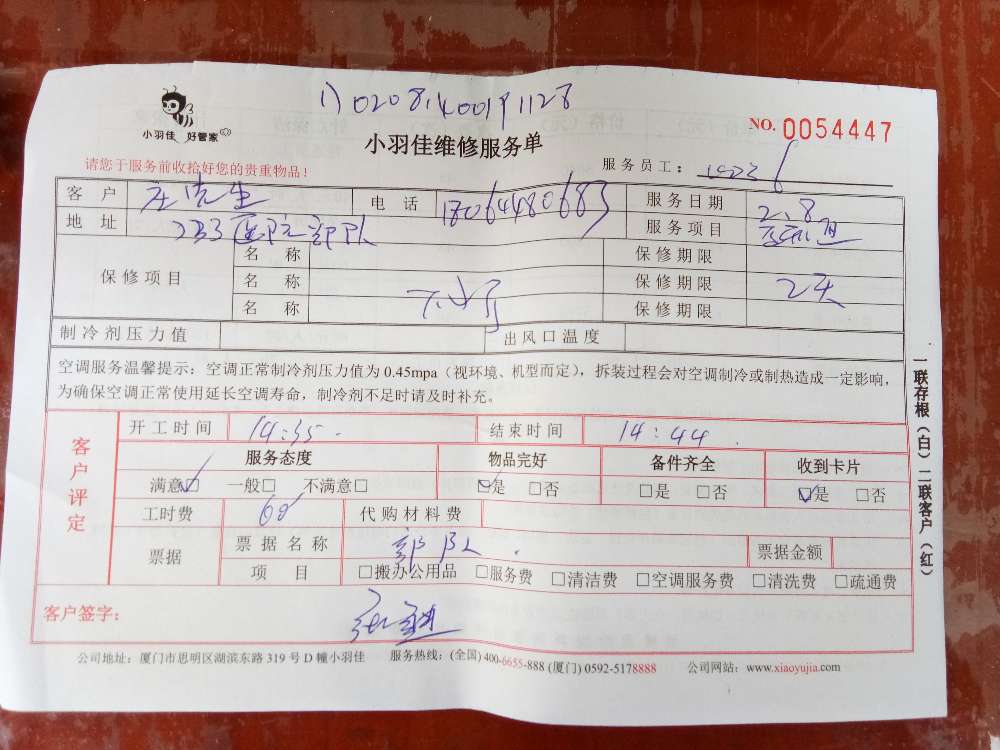 1)02081400191128
小羽佳 好管家
小羽佳维修服务单
NO. 0054447
请您于服务前收拾好您的贵重物品!
服务员工:
客户 庄先生 电话 18064480683 服务日期 2.8
地址 医院部队 服务项目
保修项目 名称 保修期限
名称 保修期限 2天
名称 保修期限
制冷剂压力值 出风口温度
空调服务温馨提示:空调正常制冷剂压力值为 0.45mpa(视环境、机型而定),拆装过程会对空调制冷或制热造成一定影响,
为确保空调正常使用延长空调寿命,制冷剂不足时请及时补充。
客户评定
开工时间 14:35. 结束时间 14:44.
服务态度 物品完好 备件齐全 收到卡片
满意☑ 一般□ 不满意□ ☑是 □否 □是 □否 ☑是 □否
工时费 60 代购材料费
票据 票据名称 部队. 票据金额
项目 □搬办公用品 □服务费 □清洁费 □空调服务费 □清洗费 □疏通费
客户签字:
公司地址:厦门市思明区湖滨东路 319 号 D 幢小羽佳 服务热线:(全国) 400-6655-888 (厦门) 0592-5178888 公司网站:www.xiaoyujia.com
一联存根(白)二联客户(红)